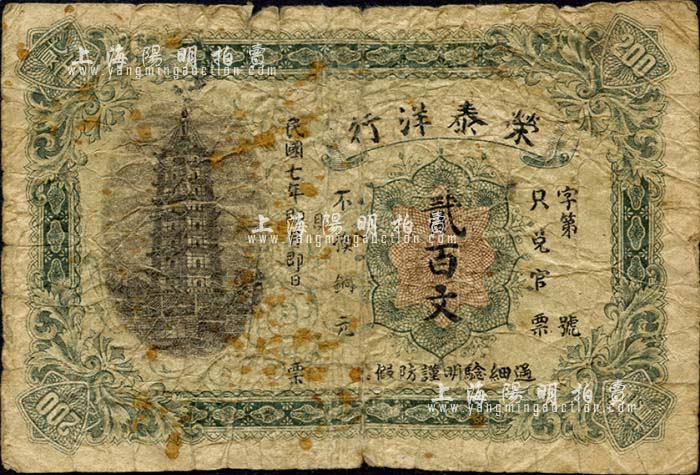 榮泰洋行
字第 號
只兌官票
貳百文
不 銅元 票
民國七年 即日
200
200
認細驗明謹防假
上海陽明拍賣
www.yangmingauction.com
上海陽明拍賣
www.yangmingauction.com
上海陽明拍賣
www.yangmingauction.com
上海陽明拍賣
www.yangmingauction.com